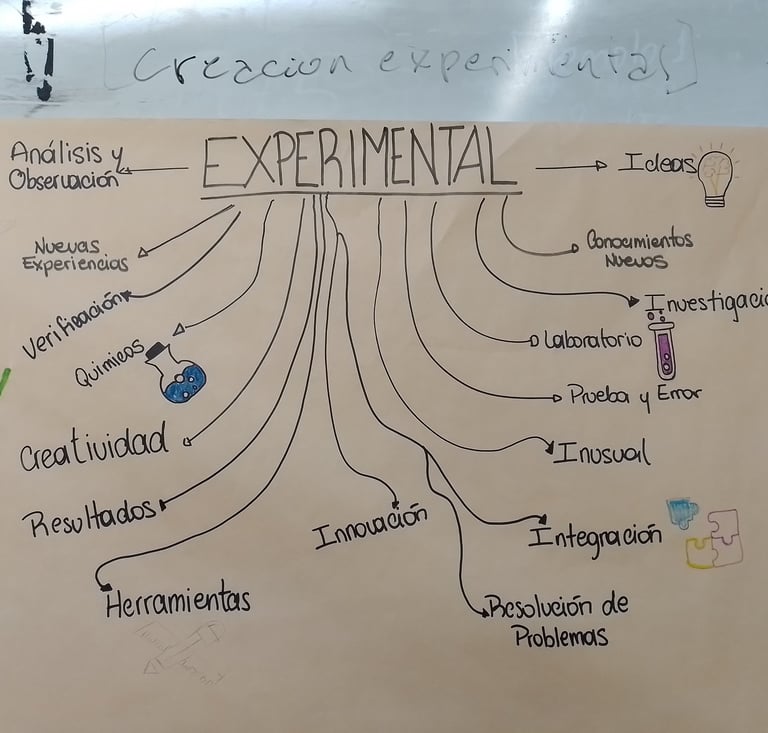 [Creacion experimentas]
EXPERIMENTAL
Análisis y
Observación
Nuevas
Experiencias
Verificación
Químicos
Creatividad
Resultados
Herramientas
Innovación
Ideas
Conocimientos
Nuevos
Investigació
Laboratorio
Prueba y Error
Inusual
Integración
Resolución de
Problemas